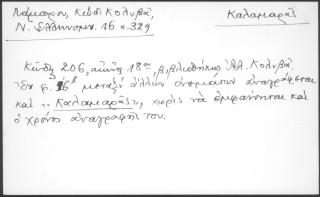 Λάμπρου, Κώδ. Κολυβᾶ,
Ν. Ἑλληνομν. 16 σ. 329
Καλαμαρᾶς
Κώδιξ 206, αἰῶνος 18ου, βιβλιοθήκης Ἀλ. Κολυβᾶ.
Ἐν φ. 16β μεταξὺ ἄλλων ὀνομάτων ἀναγράφεται
καὶ «Καλαμαρᾶς», χωρὶς νὰ ἐμφαίνηται καὶ
ὁ χρόνος ἀναγραφῆς του.